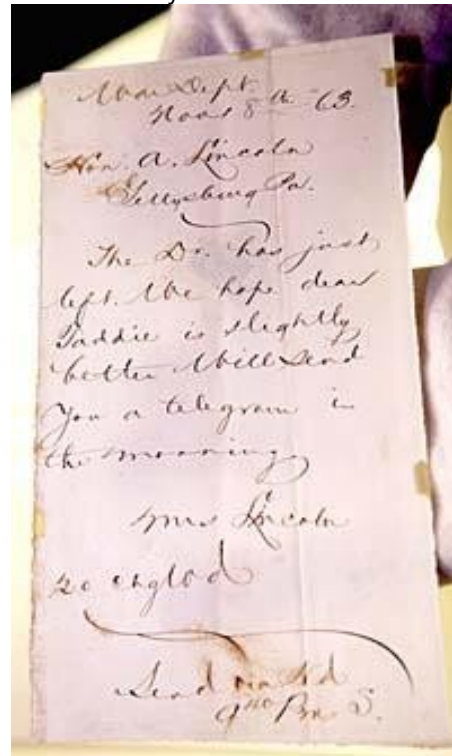 War Dept.
Nov 18 63.
Hon. A. Lincoln
Gettysburg Pa.
The Dr. has just
left. We hope dear
Taddie is slightly
better Will Send
You a telegram in
the morning
Mrs Lincoln
20
Send